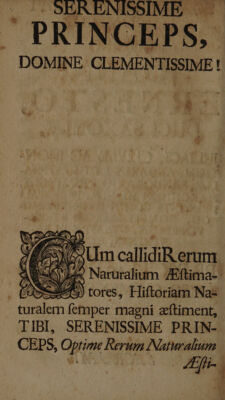 SERENISSIME
PRINCEPS,
DOMINE CLEMENTISSIME!
CUm callidi Rerum
Naruralium Æstima-
tores, Historiam Na-
turalem semper magni æstiment,
TIBI, SERENISSIME PRIN-
CEPS, Optime Rerum Naturalium
Æsti-